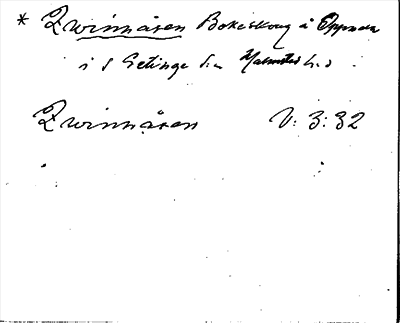 * Qwinnåsen Bokeskoug å Öppnaa
i S Getinge Sn Halmsted h:d
Qwinnåsen V: 3: 32